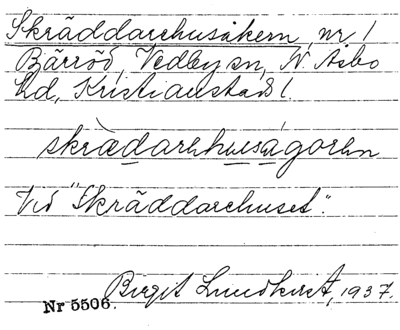 Skräddarehusåkern, nr 1
Bärröd, Vedby sn, N. Åsbo
hd, Kristianstads l.
skrædarehuságoren
Vid "Skräddarehuset".
Birgit Lundkvist, 1937.
Nr 5506.